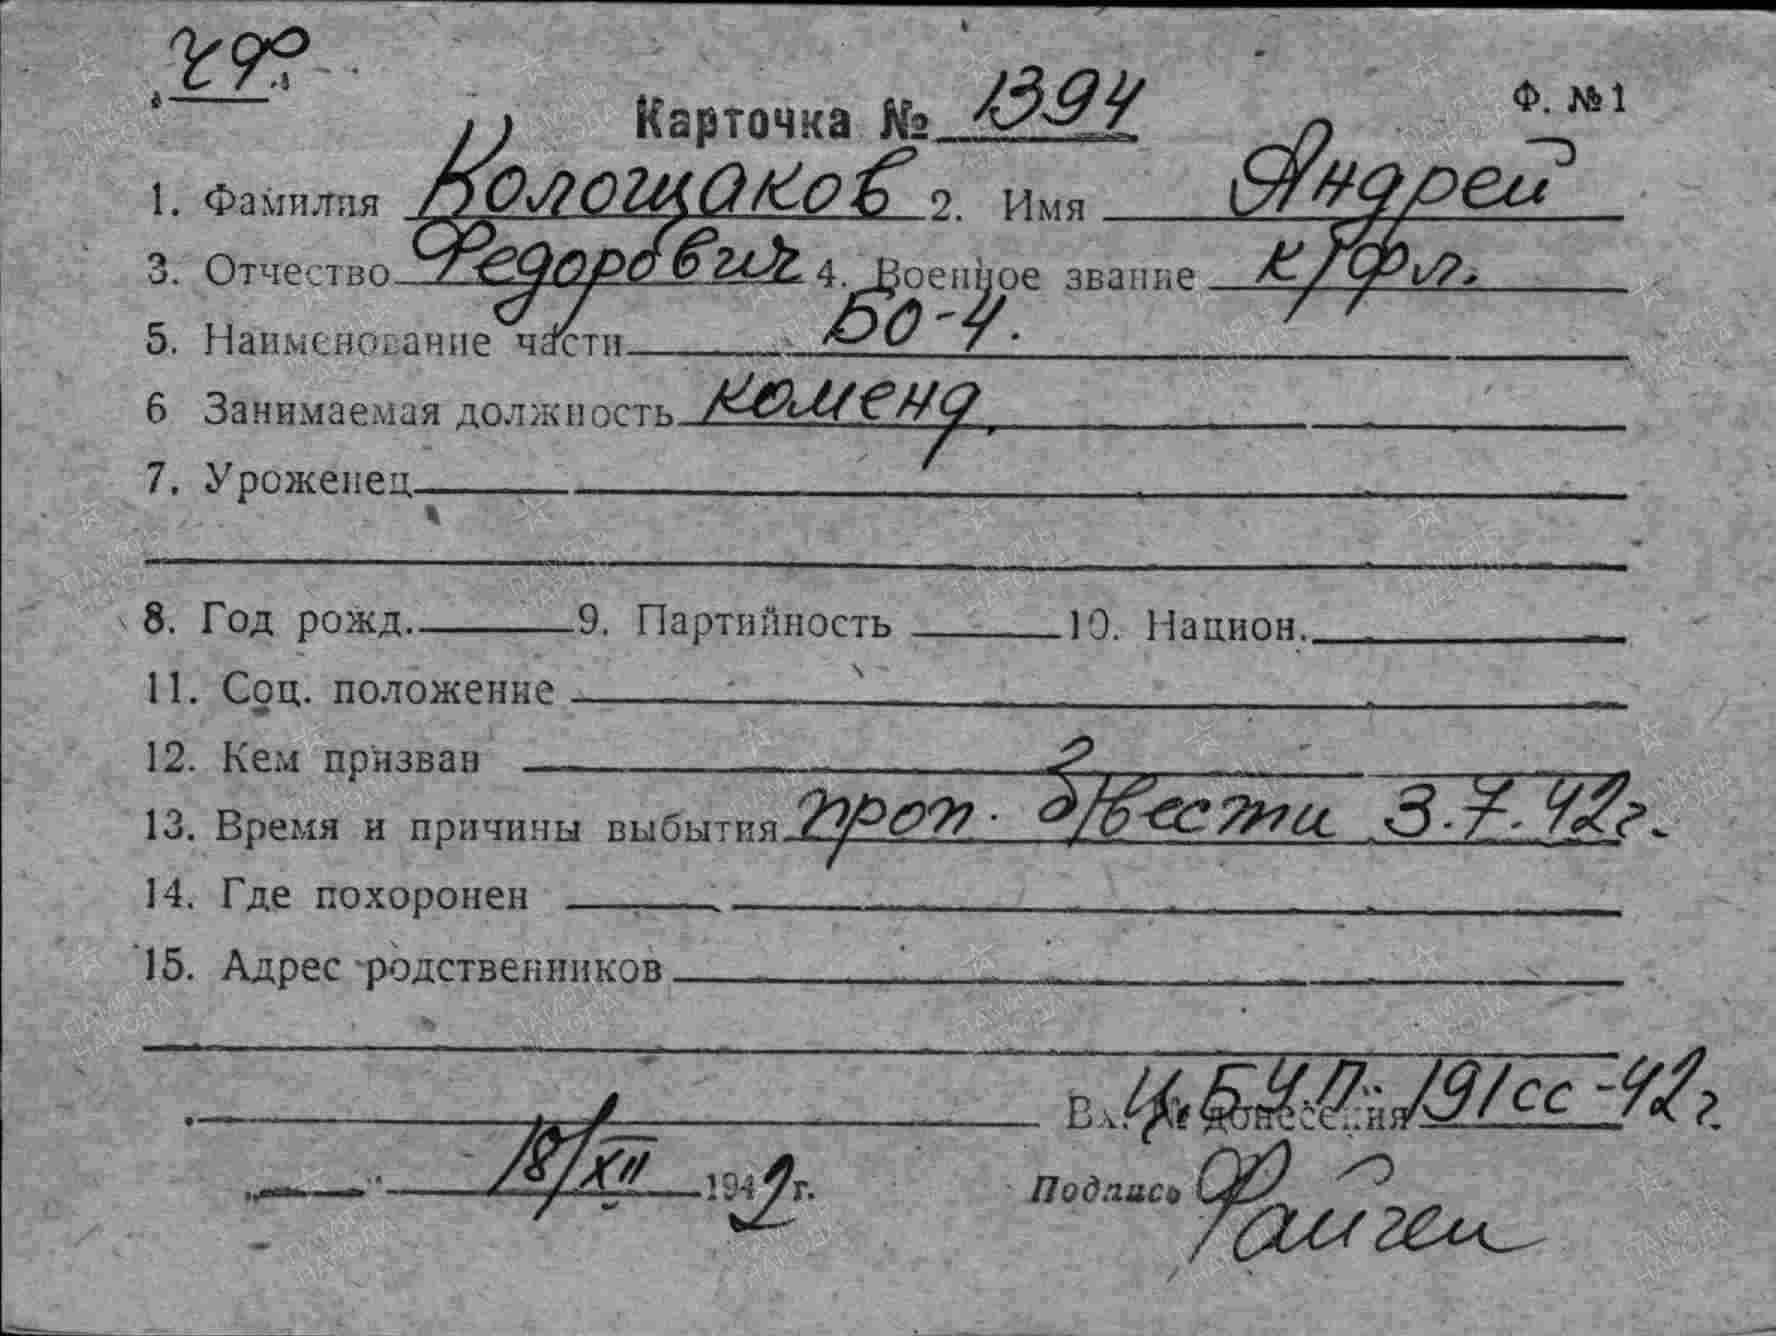 ЧФ.
Карточка № 1394
Ф. №1
1. Фамилия Колощаков 2. Имя Андрей
3. Отчество Федорович 4. Военное звание к/фл.
5. Наименование части БО-4.
6 Занимаемая должность коменд.
7. Уроженец
8. Год рожд. 9. Партийность 10. Национ.
11. Соц. положение
12. Кем призван
13. Время и причины выбытия проп. б/вести 3.7.42г.
14. Где похоронен
15. Адрес родственников
Вх. № донесения Ц.БУ.П. 191сс-42г.
18/XII 1942г.
Подпись